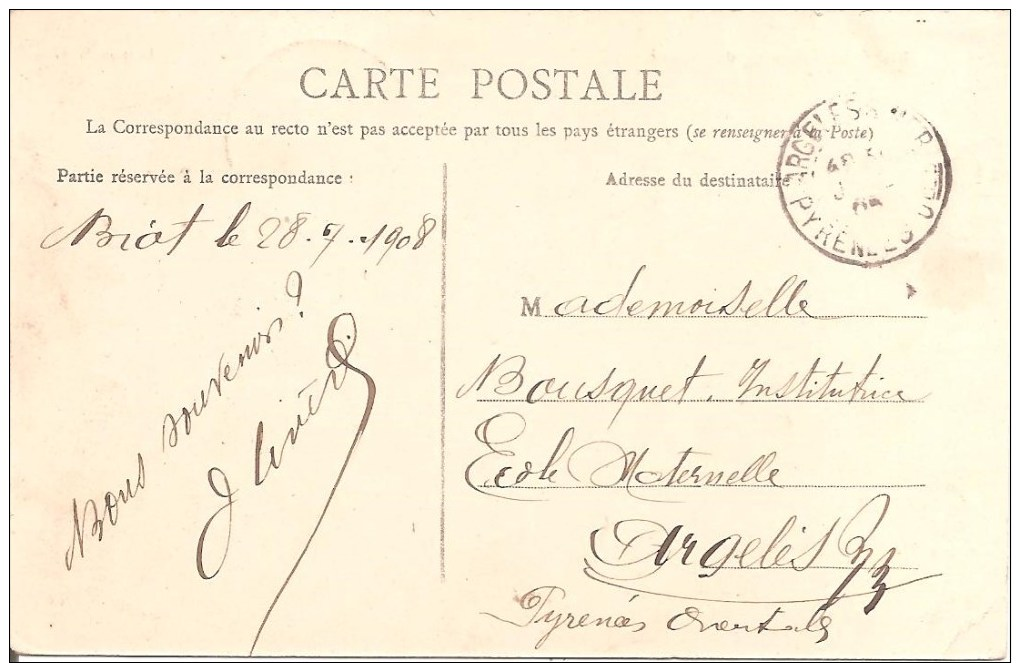 CARTE POSTALE
La Correspondance au recto n'est pas acceptée par tous les pays étrangers (se renseigner à la Poste)
Partie réservée à la correspondance :
Adresse du destinataire
ARGELÈS-S-MER
PYRÉNÉES
le 28.7.1908
Bons souvenirs
J
Mademoiselle
Bousquet. Institutrice
Ecole Maternelle
Argelès
Pyrenées Orientales